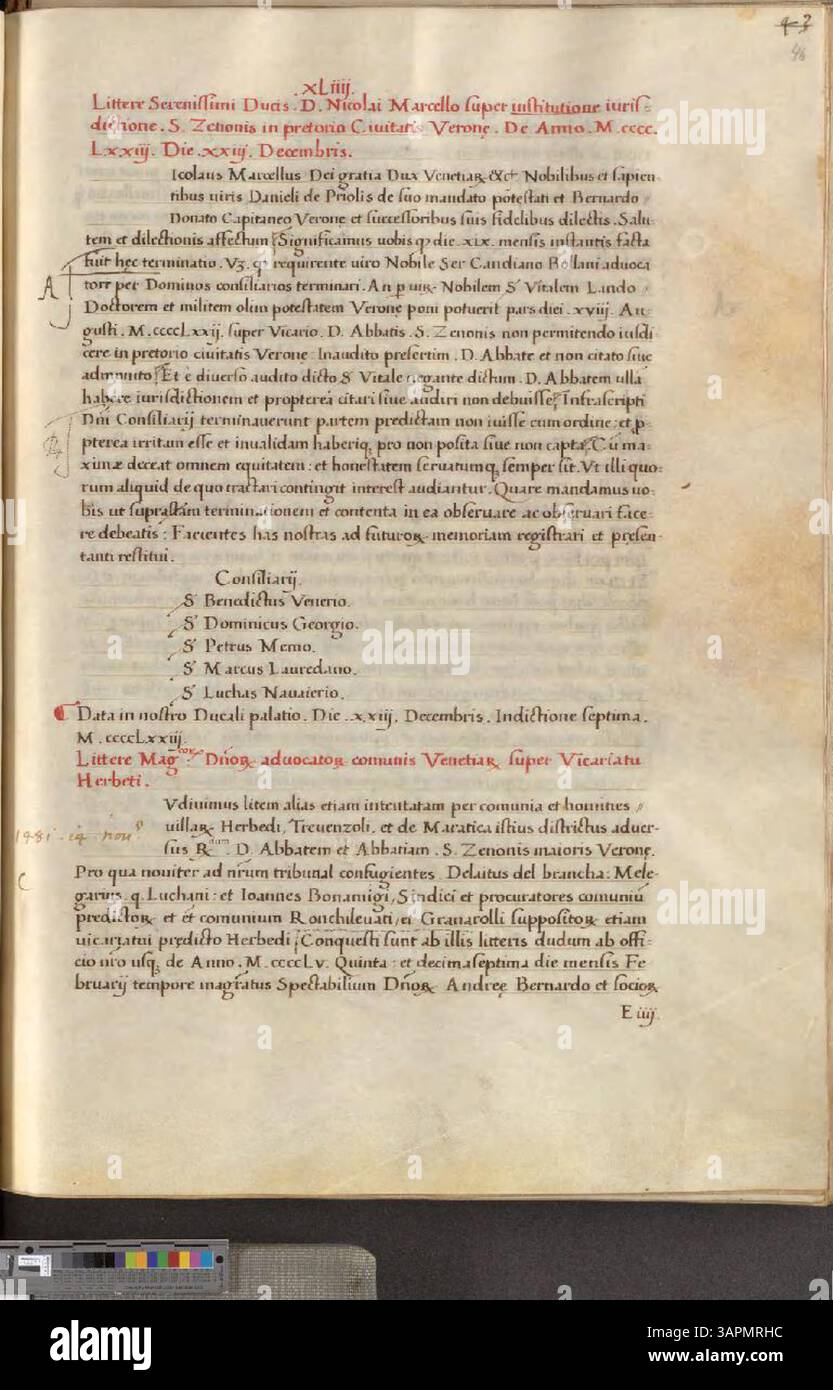 43
46
.XLiiij.
Littere Serenissimi Ducis . D. Nicolai Marcello super institutione iuris-
dictione . S. Zenonis in pretorio Ciuitatis Veronę . De Anno . M. cccc.
Lxxiij. Die .xxiij. Decembris.
Icolaus Marcellus Dei gratia Dux Venetiaꝝ &cͭ Nobilibus et sapien-
tibus uiris Danieli de Priolis de suo mandato potestati et Bernardo //
Donato Capitaneo Veronę et successoribus suis fidelibus dilectis. Salu-
tem et dilectionis affectum. Significamus uobis qꝫ die .xix. mensis instantis facta
fuit hęc terminatio. Vꝫ. qꝫ requirente uiro Nobile Ser Candiano Bollani aduoca
torr per Dominos consiliarios terminari. An p uiꝝ Nobilem S' Vitalem Lando //
A
Doctorem et militem olim potestatem Veronę poni potuerit pars diei .xviij. Au
gusti. M. ccccLxxij. super Vicario. D. Abbatis. S. Zenonis non permitendo iusdi
cere in pretorio ciuitatis Veronę Inaudito presertim. D. Abbate et non citato siue
admonito. Et è diuerso audito dicto S' Vitale negante dictum. D. Abbatem ulla
habere iurisdictionem et propterea citari siue audiri non debuisse. Infrascripti
Dn̄i Consiliarij terminauerunt partem predictam non iuisse cum ordine: et ꝓ
pterea irritam esse et inualidam haberiqꝫ pro non posita siue non capta. Cū ma-
ximæ deceat omnem equitatem: et honestatem seruatumqꝫ semper sit. Vt illi quo-
rum aliquid de quo tractari contingit interest audiantur. Quare mandamus uo-
bis ut suprastām terminationem et contenta in ea obseruare ac obseruari face-
re debeatis: Facientes has nostras ad futuroꝝ memoriam registrari et presen-
tanti restitui.
Consiliarij.
S' Benedictus Venerio.
S' Dominicus Georgio.
S' Petrus Memo.
S' Marcus Lauredano.
S' Luchas Nauaierio.
Data in nostro Ducali palatio. Die .xxiij. Decembris. Indictione septima.
M. ccccLxxiij.
Littere Magcoꝝ Dn̄oꝝ aduocatoꝝ comunis Venetiaꝝ super Vicariatu
Herbeti.
Vdiuimus litem alias etiam intentatam per comunia et homines //
1481. 14 nou
uillaꝝ Herbedi, Treuenzoli, et de Maratica istius districtus aduer-
sus R dum. D. Abbatem et Abbatiam. S. Zenonis maioris Veronę.
Pro qua nouiter ad nr̄um tribunal confugientes Delaitus del brancha: Mele-
garius. q. Luchani: et Ioannes Bonamigi, Sindici et procuratores comuniū
predictoꝝ et et comunium Ronchileuati, et Granarolli suppositoꝝ etiam
uicariatui prędicto Herbedi, Conquesti sunt ab illis litteris dudum ab offi-
cio nr̄o usqꝫ de Anno. M. ccccLv. Quinta: et decimaseptima die mensis Fe
bruarij tempore magr̄atus Spectabilium Dn̄oꝝ Andreę Bernardo et socioꝝ
E iiij.